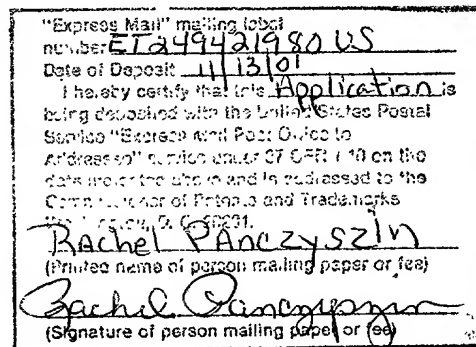 "Express Mail" mailing label
number ET249421980 US
Date of Deposit 11/13/01
I hereby certify that this Application is
being deposited with the United States Postal
Service "Express Mail Post Office to
Addressee" service under 37 CFR 1.10 on the
date indicated above and is addressed to the
Commissioner of Patents and Trademarks
Washington, D.C. 20231.
Rachel PAnczyszin
(Printed name of person mailing paper or fee)
Rachel Panczyszyn
(Signature of person mailing paper or fee)